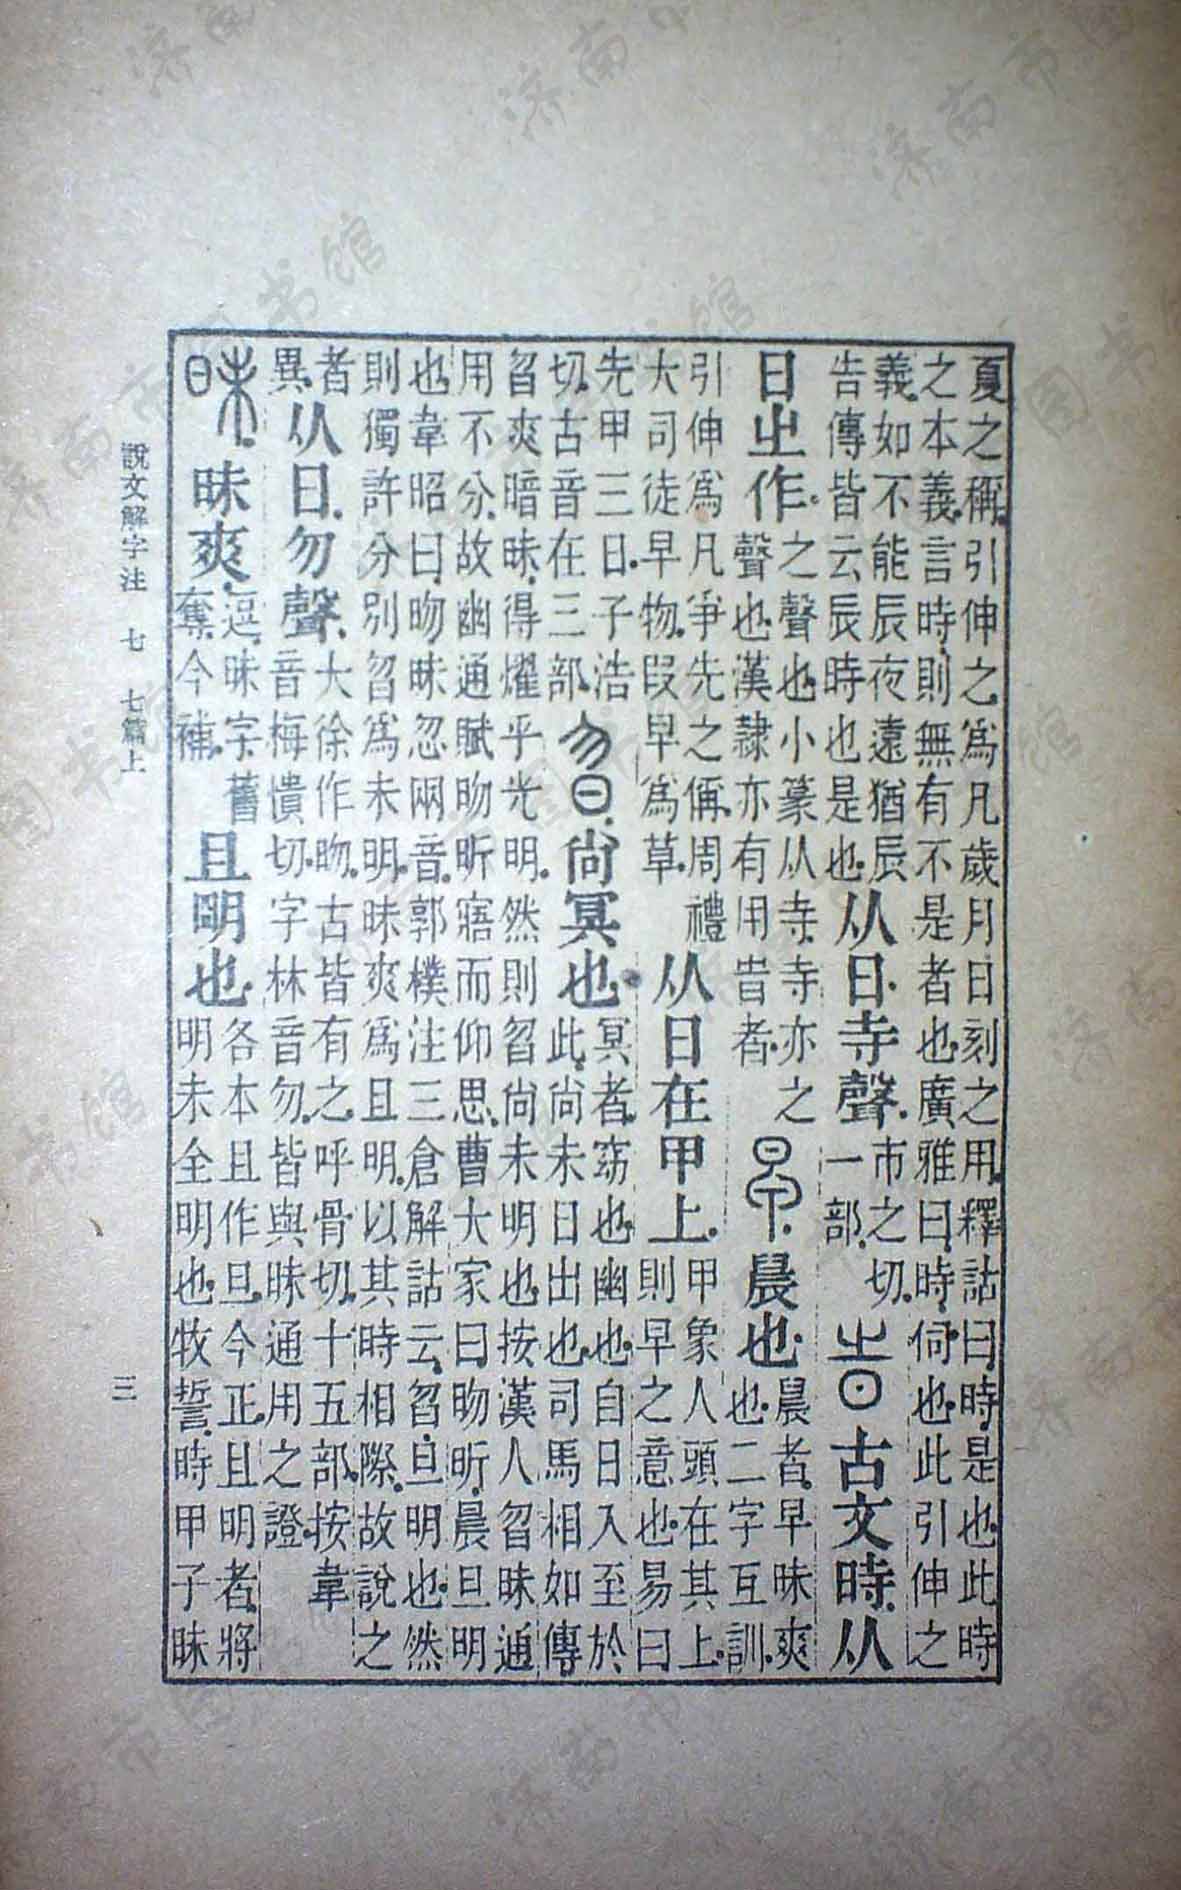 夏之稱。引伸之爲凡歲月日刻之用。釋詁曰。時。是也。此時
之本義。言時則無有不是者也。廣雅曰。時。伺也。此引伸之
義。如不能辰夜遠猶辰
告。傳皆云辰時也是也。
从日。寺聲。
市之切。
一部。
㞢日古文時。从
日㞢作。
之聲也。小篆从寺。寺亦之
聲也。漢隷亦有用旹者。
早。晨也。
晨者。早昧爽
也。二字互訓。
引伸爲凡爭先之偁。周禮
大司徒早物。叚早爲草。
从日在甲上。
甲象人頭在其上。
則早之意也。易曰
先甲三日。子浩
切。古音在三部。
昒。尙冥也。
冥者。窈也。幽也。自日入至於
此。尙未日出也。司馬相如傳。
曶爽暗昧。得燿乎光明。然則曶尙未明也。按漢人曶昧通
用不分。故幽通賦昒昕寤而仰思。曹大家曰。昒昕。晨旦明
也。韋昭曰。昒昧忽兩音。郭樸注三倉解詁云。曶。旦明也。然
則獨許分別曶爲未明。昧爽爲且明。以其時相際。故說之
者
異。
从日。勿聲。
大徐作昒。古皆有之。呼骨切。十五部。按韋
音梅憒切。字林音勿。皆與昧通用之證。
昧。昧爽。
逗。昧字舊
奪。今補。
且明也。
各本且作旦。今正。且明者。將
明未全明也。牧誓。時甲子昧
說文解字注 七 七篇上 三
济南市图书馆